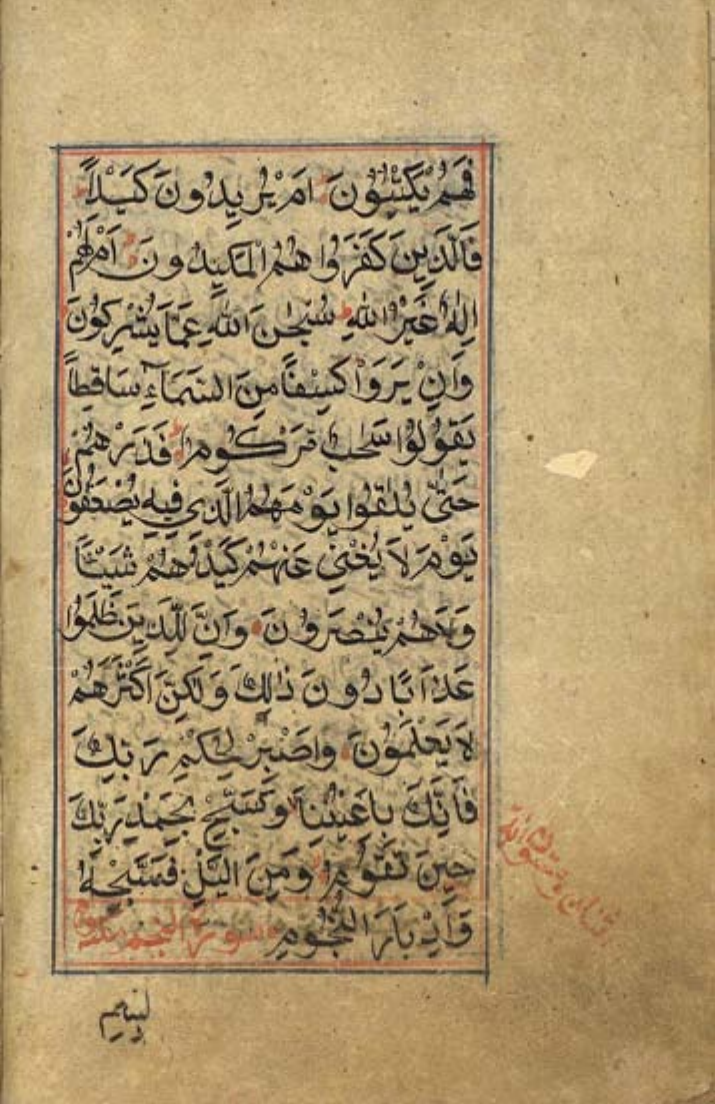 فَهُمْ يَكْتُبُونَ اَمْ يُرِيدُونَ كَيْدًا
فَالَّذِينَ كَفَرُوا هُمُ الْمَكِيدُونَ اَمْ لَهُمْ
اِلٰهٌ غَيْرُ اللّٰهِ سُبْحٰنَ اللّٰهِ عَمَّا يُشْرِكُونَ
وَاِنْ يَرَوْا كِسْفًا مِنَ السَّمَاءِ سَاقِطًا
يَقُولُوا سَحَابٌ مَرْكُومٌ فَذَرْهُمْ
حَتّٰى يُلٰقُوا يَوْمَهُمُ الَّذِي فِيهِ يُصْعَقُونَ
يَوْمَ لَا يُغْنِي عَنْهُمْ كَيْدُهُمْ شَيْئًا
وَلَا هُمْ يُنْصَرُونَ وَاِنَّ لِلَّذِينَ ظَلَمُوا
عَذَابًا دُونَ ذٰلِكَ وَلٰكِنَّ اَكْثَرَهُمْ
لَا يَعْلَمُونَ وَاصْبِرْ لِحُكْمِ رَبِّكَ
فَاِنَّكَ بِاَعْيُنِنَا وَسَبِّحْ بِحَمْدِ رَبِّكَ
حِينَ تَقُومُ وَمِنَ الَّيْلِ فَسَبِّحْهُ
وَاِدْبَارَ النُّجُومِ سورة النجم
بسم